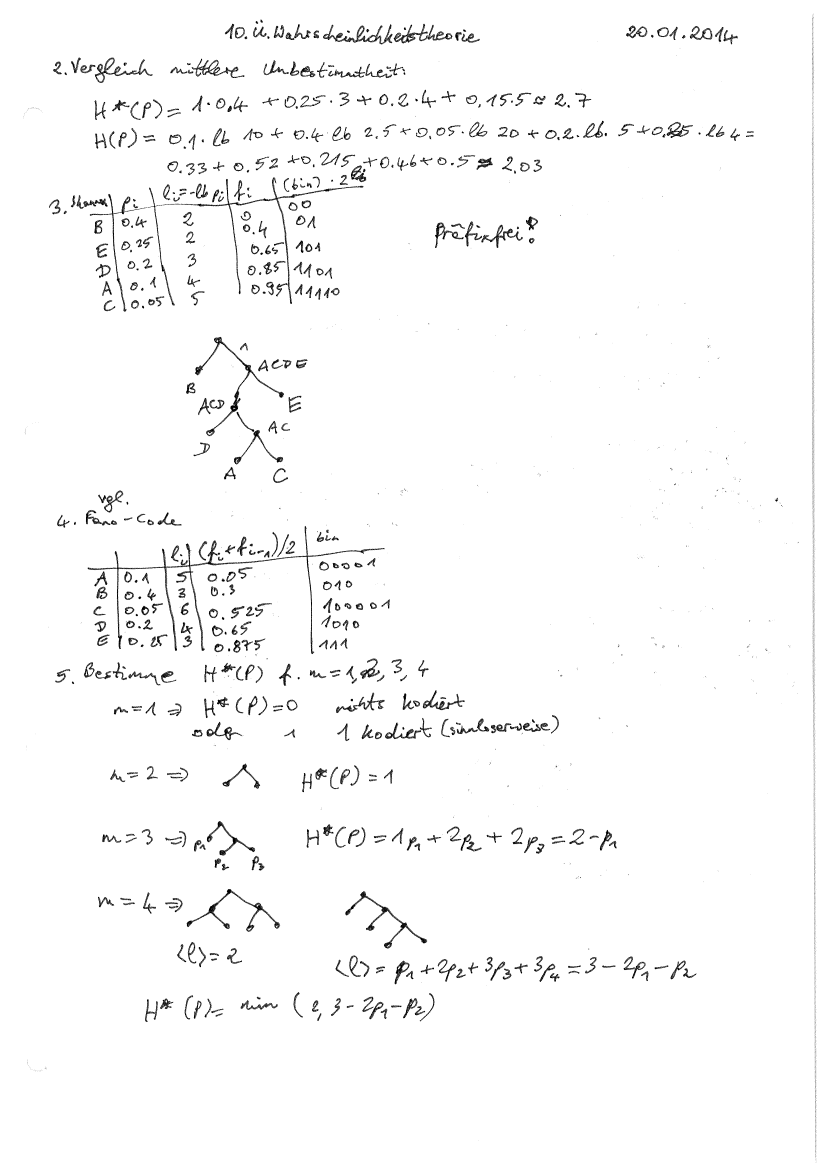 10. Ü. Wahrscheinlichkeitstheorie 20.01.2014
2. Vergleich mittlere Unbestimmtheit:
H*(P) = 1·0,4 + 0.25·3 + 0.2·4 + 0,15·5 ≈ 2.7
H(P) = 0,1·lb 10 + 0.4·lb 2,5 + 0,05·lb 20 + 0.2·lb. 5 + 0,25·lb 4 =
0.33 + 0.52 + 0,215 + 0.46 + 0.5 ≈ 2,03
3. Shannon pi li=-lb pi fi (bin)·2^li
B 0.4 2 0 00
E 0,25 2 0.4 01
D 0.2 3 0.65 101
A 0.1 4 0.85 1101
C 0.05 5 0.95 11110
Präfixfrei!
1
ACDE
B
ACD
E
AC
D
A C
vgl.
4. Fano-Code
li (fi+fi-1)/2 bin
A 0.1 5 0.05 00001
B 0.4 3 0.3 010
C 0.05 6 0.525 100001
D 0.2 4 0.65 1010
E 0.25 3 0.875 111
5. Bestimme H*(P) f. m=1,2,3,4
m=1 ⇒ H*(P)=0 nichts kodiert
oder 1 1 kodiert (sinnloserweise)
m=2 ⇒ H*(P)=1
m=3 ⇒ p1 p2 p3 H*(P)=1p1+2p2+2p3=2-p1
m=4 ⇒
<l>=2 <l>= p1+2p2+3p3+3p4=3-2p1-p2
H*(P)= min (2,3-2p1-p2)